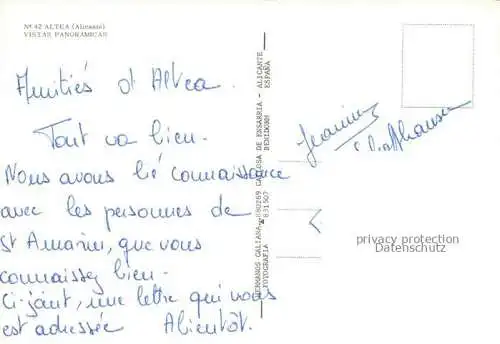 Nº 42 ALTEA (Alicante)
VISTAS PANORAMICAS
Amitiés d'Altea.
Tout va bien.
Nous avons lié connaissance
avec les personnes de
St Amarin, que vous
connaissez bien.
Ci-joint, une lettre qui vous
est adressée Abientôt.
HERMANOS GALIANA
CALLOSA DE ENSARRIA - ALICANTE
FOTOGRAFIA
BENIDORM
ESPAÑA
Jeannine
privacy protection
Datenschutz